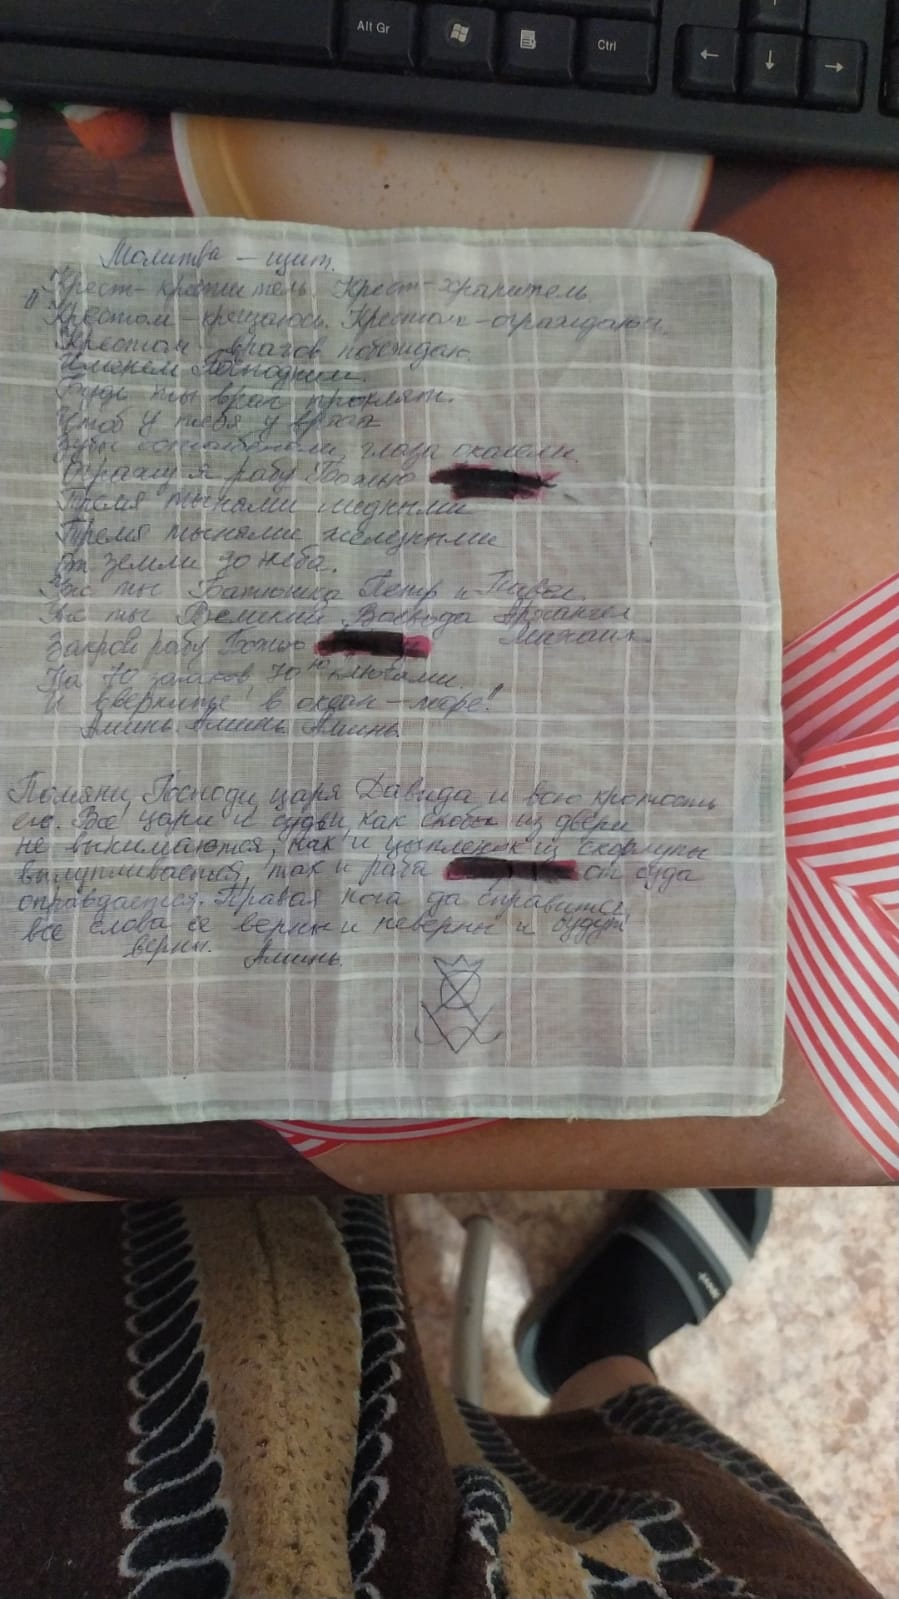 Alt Gr
Ctrl
← ↓ →
Молитва - щит.
"Крест-креститель. Крест-хранитель.
Крестом-крещаюсь. Крестом-ограждаюсь.
Крестом врагов побеждаю.
Именем Господним.
Будь ты враг проклят.
Чтоб у тебя, у врага
Зубы остолбенели, глаза окосели.
Огражу я рабу Божью
Тремя тынами медными
Тремя тынами железными
От земли до неба.
Уж ты Батюшка Петр и Павел
Уж ты Великий Воевода Архангел
Михаил
Закрой рабу Божью
На 70 замков 70ю ключами.
И вверните в океан-море!"
Аминь. Аминь. Аминь.
Помяни, Господи, царя Давида и всю кротость
его. Все цари и судьи, как скобы из двери
не вынимаются, как и цыпленок из скорлупы
вылупливается, так и раба от суда
оправдается. Правая нога да справится
все слова ее верны и неверны и будут
верны. Аминь.